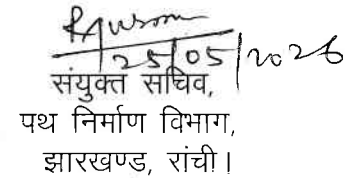 25/05/2026
संयुक्त सचिव,
पथ निर्माण विभाग,
झारखण्ड, रांची।